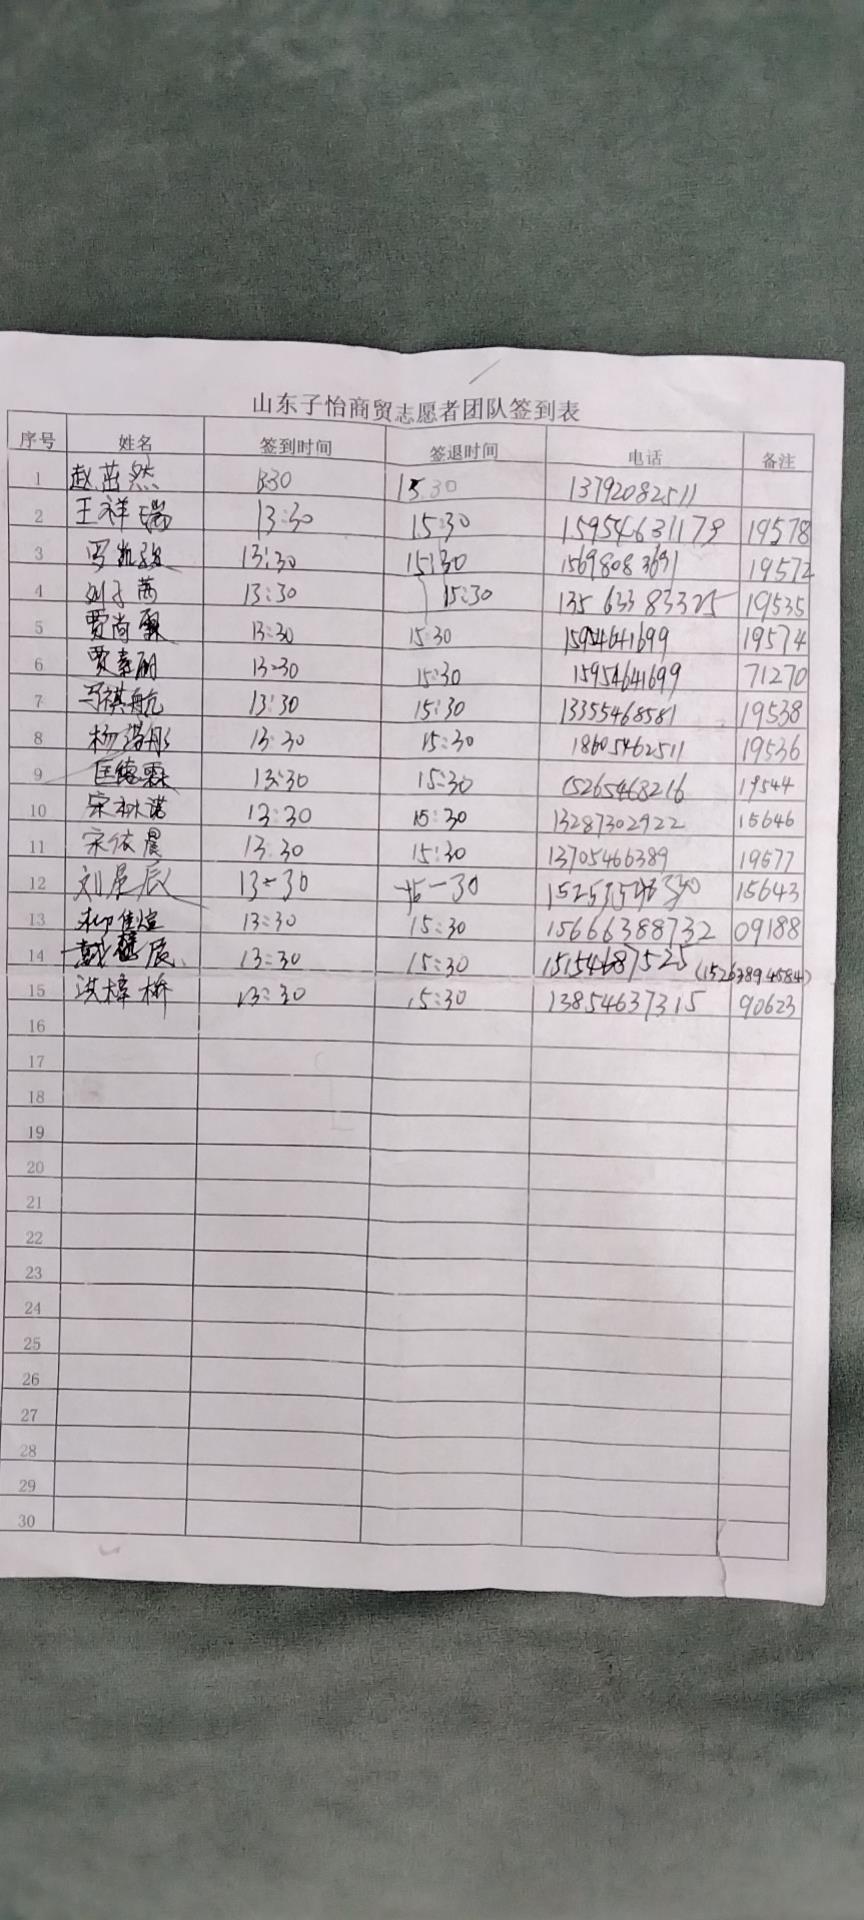 山东子怡商贸志愿者团队签到表
序号 姓名 签到时间 签退时间 电话 备注
1 赵茁然 13:30 15:30 13792082511
2 王祥瑞 13:30 15:30 15954631179 19578
3 13:30 15:30 15698083691 19572
4 刘子茜 13:30 15:30 13563383325 19535
5 贾尚霖 13:30 15:30 15954641699 19574
6 贾素丽 13:30 15:30 15954641699 71270
7 马祺航 13:30 15:30 13355468581 19538
8 杨 13:30 15:30 18605462511 19536
9 匡德霖 13:30 15:30 15265468216 19544
10 宋 诺 13:30 15:30 13287302922 15646
11 宋依晨 13:30 15:30 13705466389 19577
12 刘星辰 13-30 15-30 15643
13 佳煊 13:30 15:30 15666388732 09188
14 戴 辰 13:30 15:30 15154687525 (15263894584)
15 洪樟桥 13:30 15:30 13854637315 90623
16
17
18
19
20
21
22
23
24
25
26
27
28
29
30